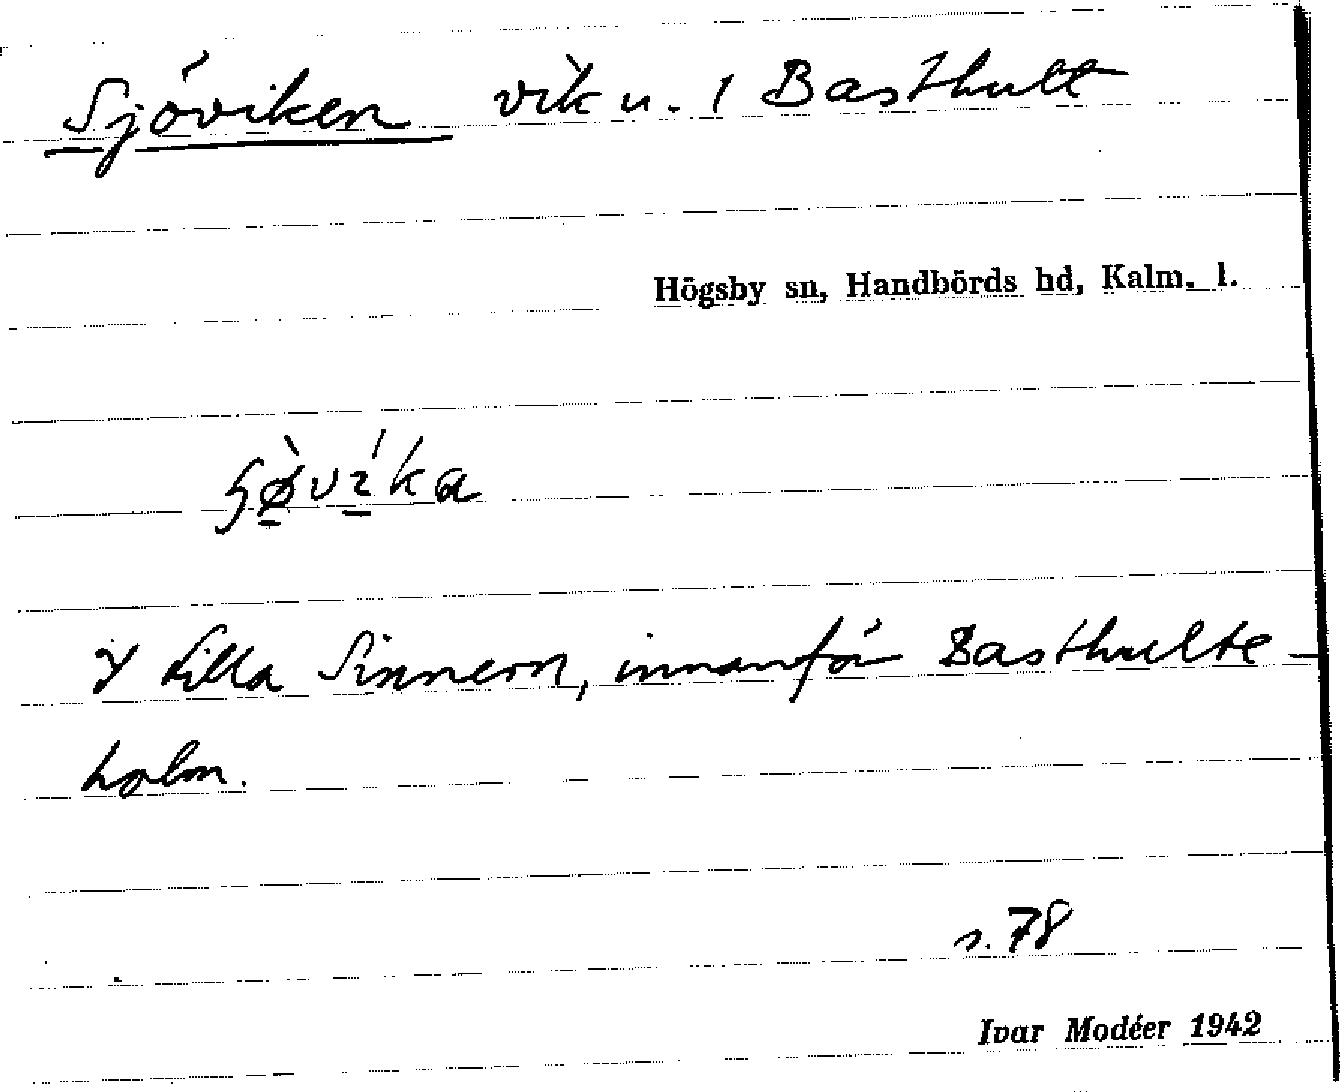 Sjöviken vik u. 1 Basthult
Högsby sn, Handbörds hd, Kalm. l.
I Lilla Sinnern, innanför Basthulte-
holm.
s. 78
Ivar Modéer 1942